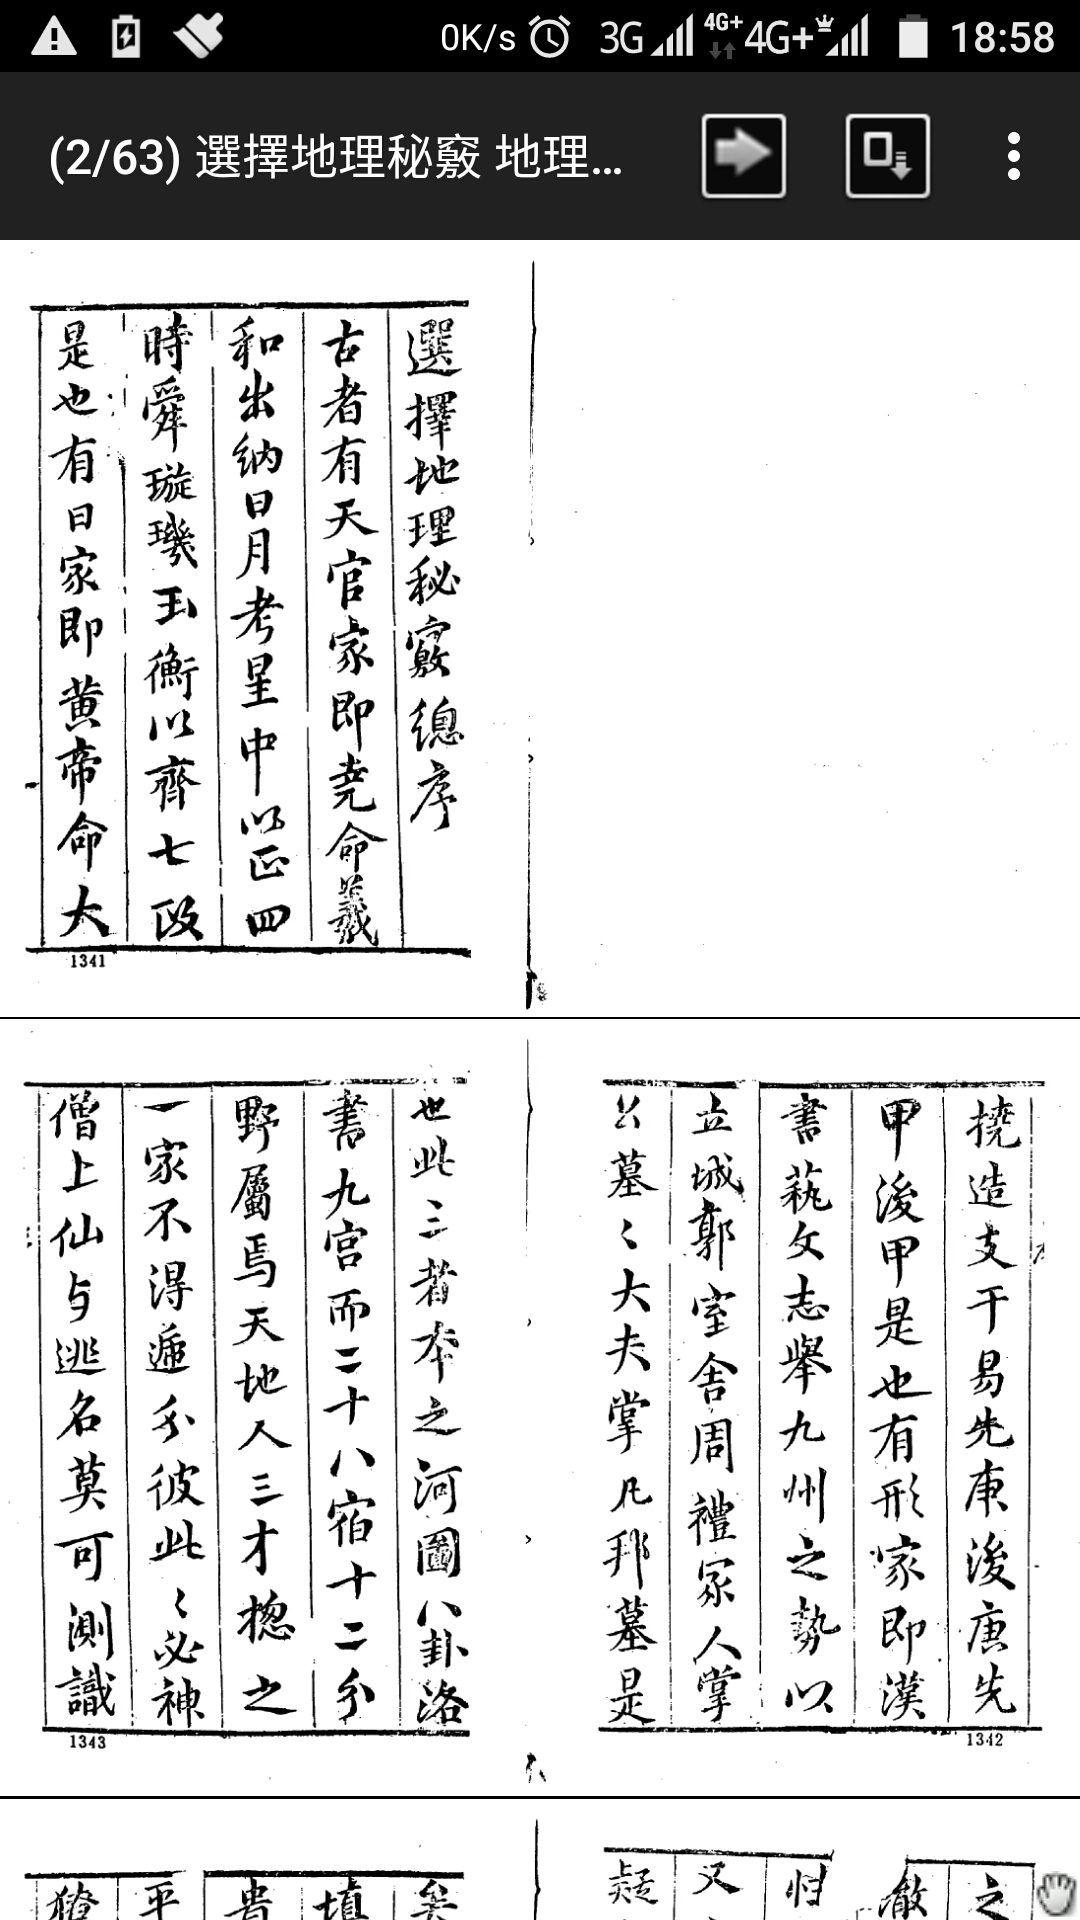 0K/s 3G 4G+ 4G+ 18:58
(2/63) 選擇地理秘竅 地理...
選擇地理秘竅總序
古者有天官家即堯命羲
和出納日月考星中以正四
時舜璇璣玉衡以齊七政
是也有日家即黄帝命大
1341
撓造支干易先庚後庚先
甲後甲是也有形家即漢
書藝文志舉九州之勢以
立城郭室舍周禮冢人掌
公墓〻大夫掌凡邦墓是
1342
也此三者本之河圖八卦洛
書九宫而二十八宿十二分
野屬焉天地人三才揔之
一家不得遁分彼此〻必神
僧上仙与逃名莫可測識
1343
之
徹
归
又
疑
矣
填
貴
平
獠